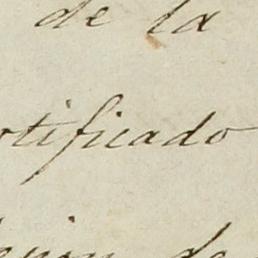 de la
rtificado
de